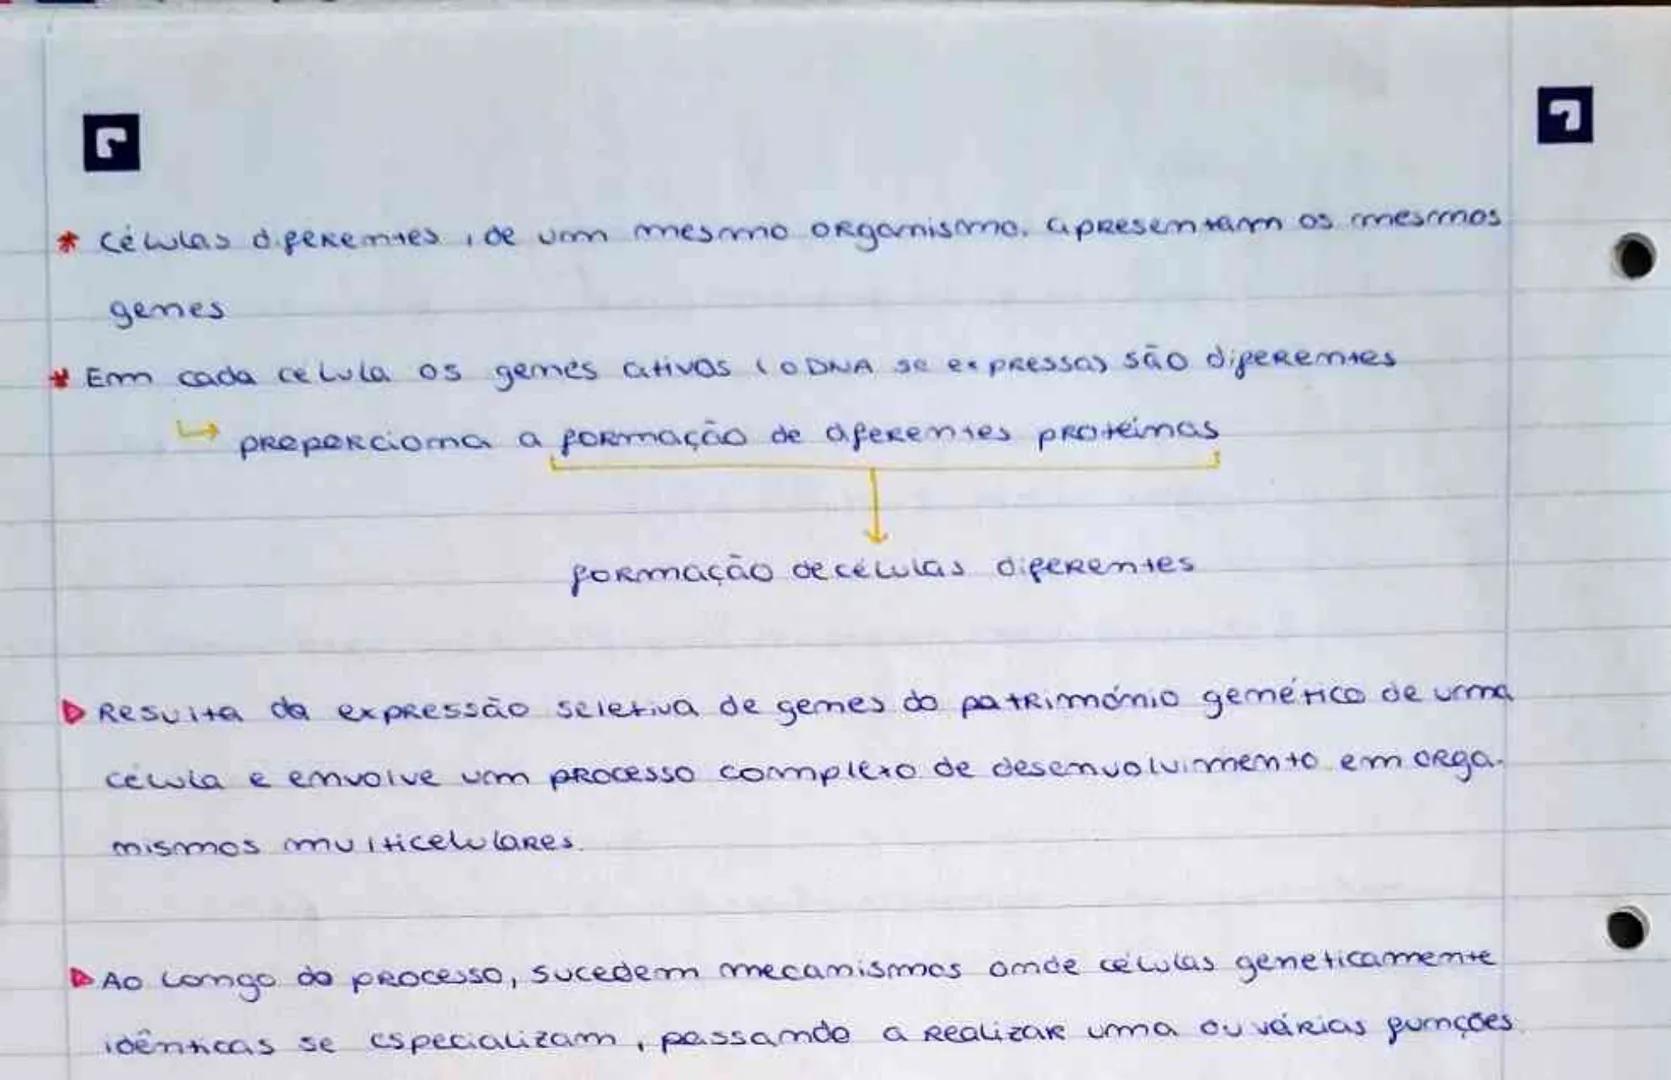 * Células diferentes, de um mesmo organismo, apresentam os mesmos
genes
* Em cada célula os genes ativos (o DNA se expressa) são diferentes
↳ preporciona a formação de diferentes proteínas
formação de células diferentes
▷ Resulta da expressão seletiva de genes do património genético de uma
célula e envolve um processo complexo de desenvolvimento em orga-
nismos multicelulares.
▷ Ao longo do processo, sucedem mecanismos onde células geneticamente
idênticas se especializam, passando a realizar uma ou várias funções